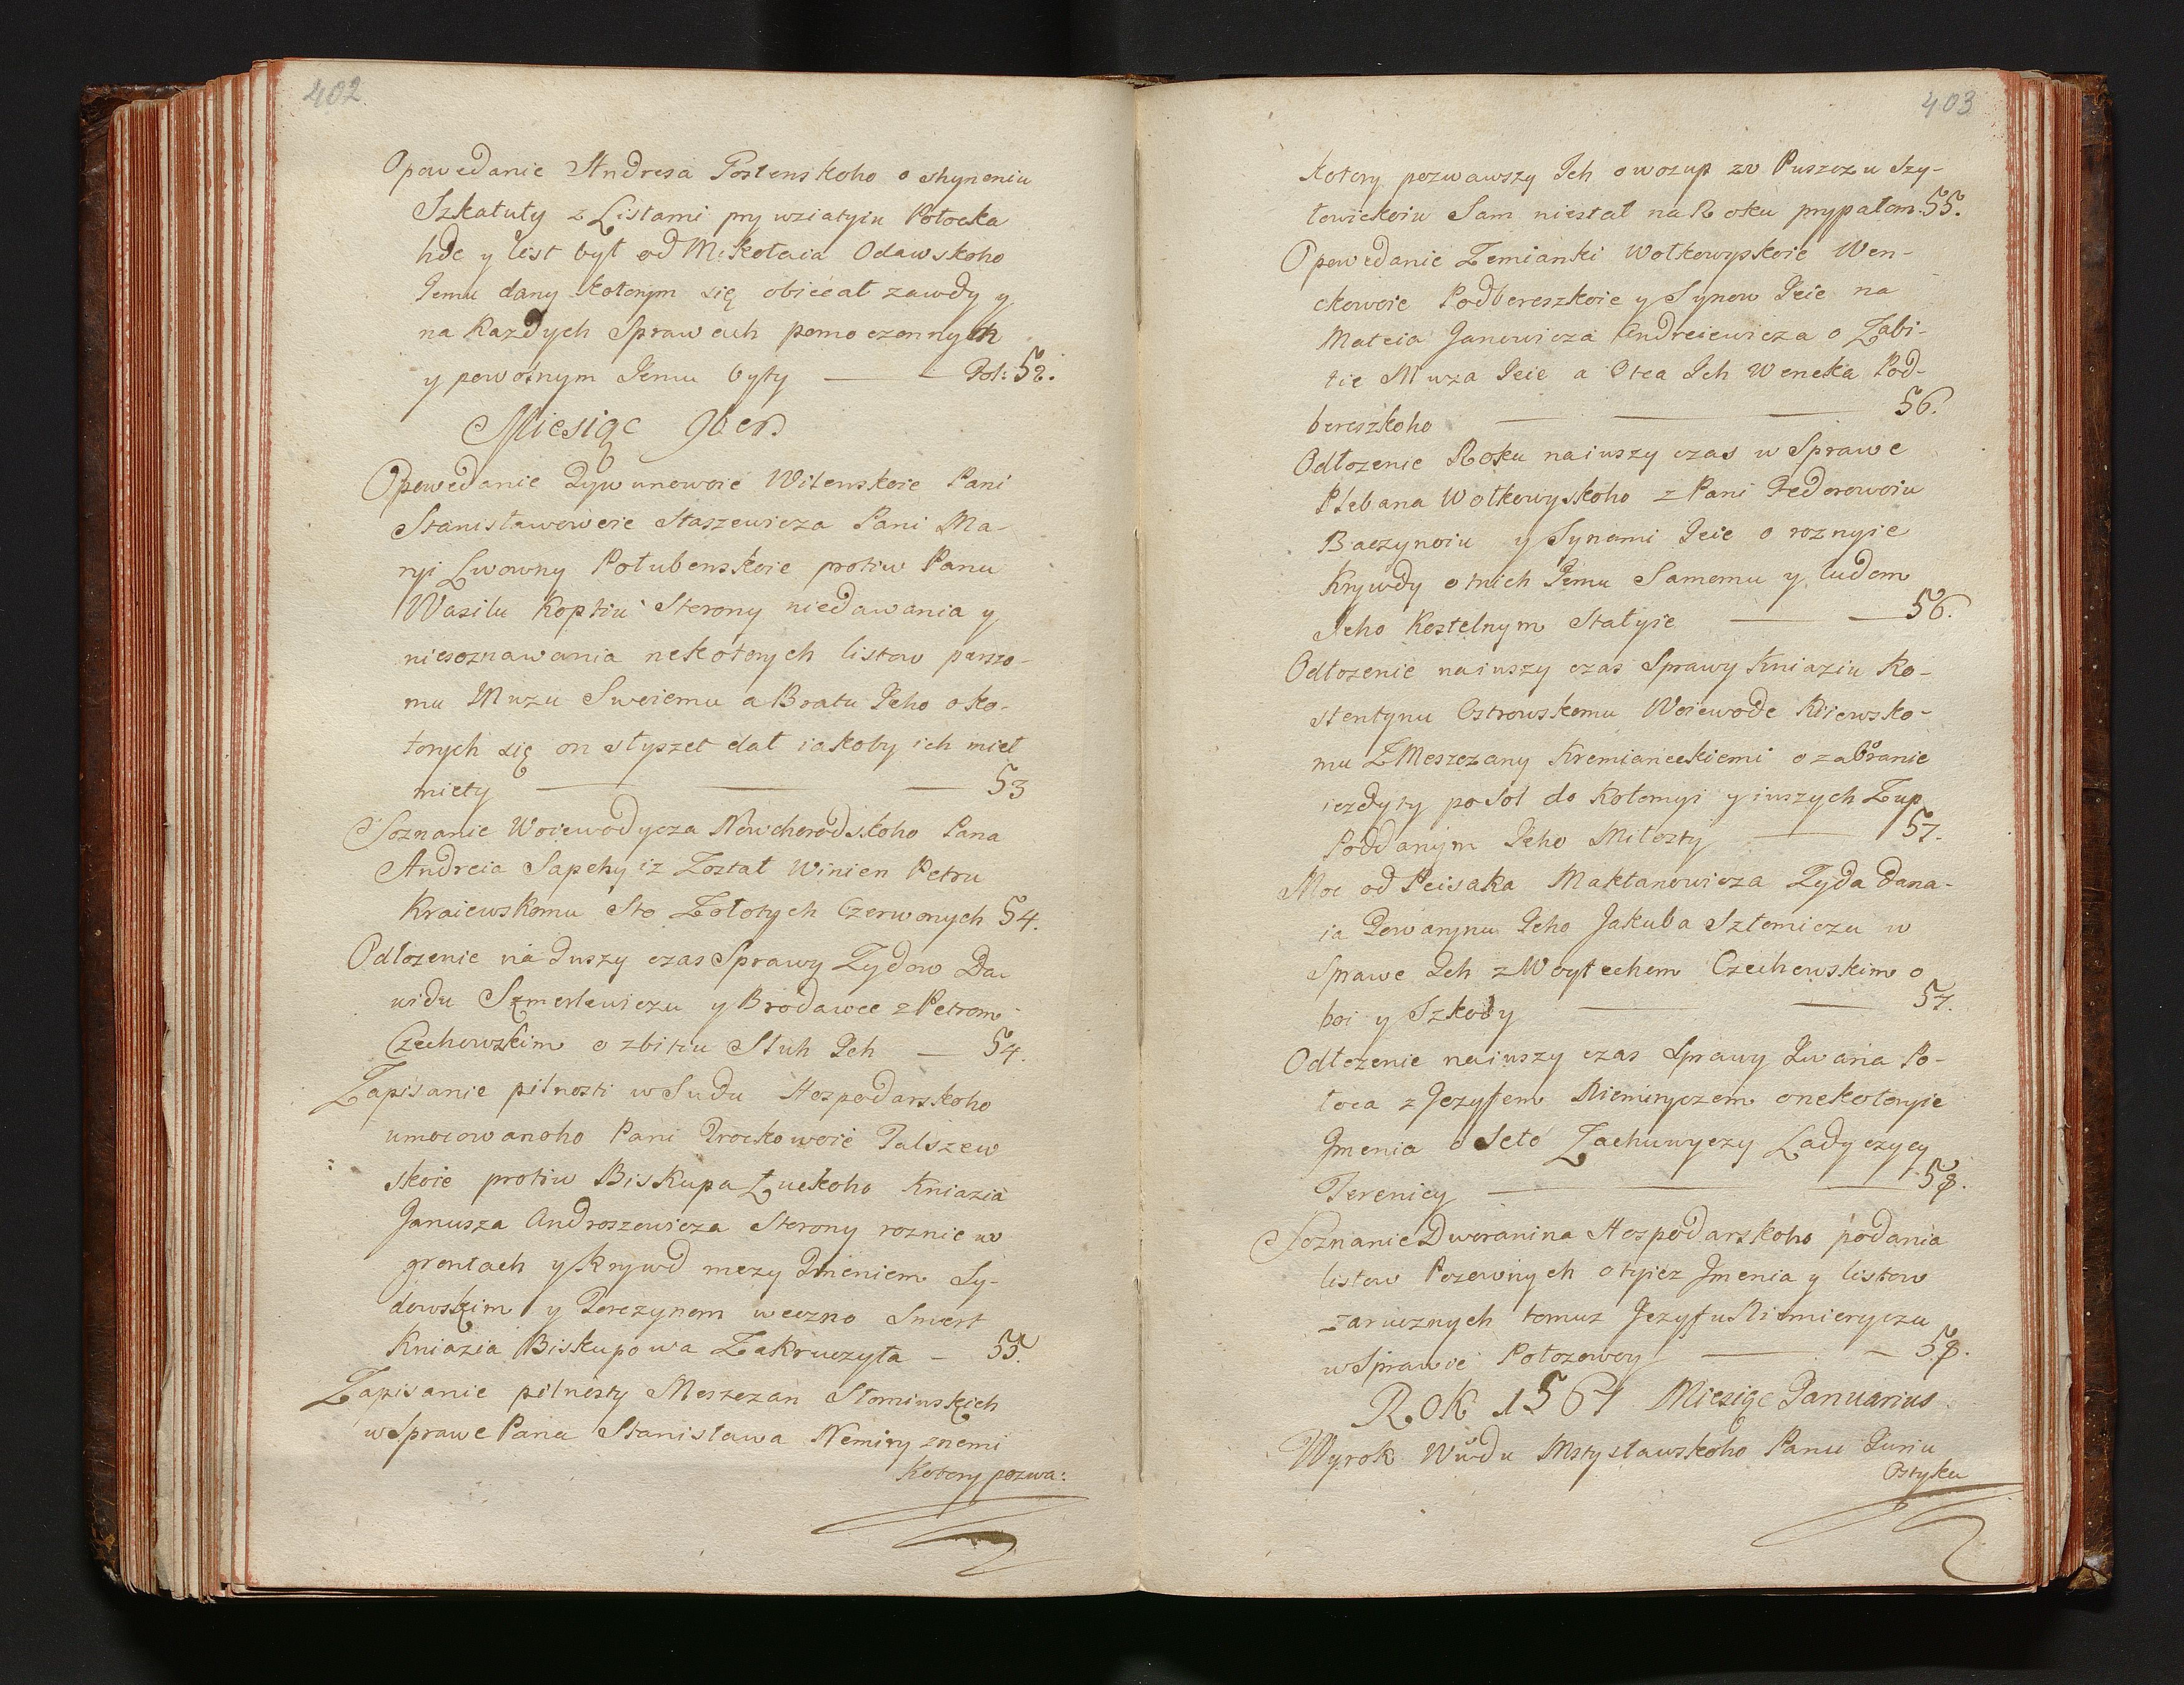 402.
Opowedanie Andresa Postenskoho o shyneniu
Szkatuły z Listami pry wziatyiu Połocka
hde y list był od Mikołaia Odawskoho
Jemu dany kotorym się obiecał zawdy y
na Każdych Sprawach pomoczonnym
y powolnym Jemu byty — Fol: 52.
Miesiąc 9ber.
Opowedanie Tywunowoie Wilenskoie Pani
Stanisławowoie Staszewicza Pani Ma-
ryi Lwowny Połubenskoie protiw Panu
Wasilu Koptiu Storony niedawania y
niesoznawania nekotorych listow perszo-
mu Mużu Swoiemu a Bratu Jeho o ko-
torych się on słyszet dał iakoby ich miet
miety — 53
Soznanie Woiewodycza Nowohorodskoho Pana
Andreia Sapehy iż Został Winien Petru
Kraiewskomu Sto Zołotych Czerwonych 54.
Odłożenie na Juszy czas Sprawy Żydow Da-
widu Szmerlewiczu y Brodawce z Petrom
Czechowskim o zbitiu Sluh Jeh — 54.
Zapisanie pilnosti w Sudu Hospodarskoho
umocowanoho Pani Trockowoie Falszew
skoie protiw Biskupa Łuckoho Kniazia
Janusza Androszewicza Storony roznic w
gruntach y Krywd mezy Imeniem Sy-
dowskim y Torczynom weczno Smert
Kniazia Biskupowa Zakruczyła — 55.
Zapisanie pilnosty Meszczan Słonimskich
w Sprawe Pana Stanisława Nemiry znemi
Kotory pozwa:
403
kotory pozwawszy Jeh o wozup w Puszczu Szy-
łowickoiu Sam niestał na Roku prypałom. 55.
Opowedanie Zemianki Wołkowyskoie Wen-
ckowoie Podbereszkoie y Synow Jeie na
Mateia Janowicza Andreiewicza o Zabi-
tie Muża Jeie a Otca Jeh Wencka Pod-
bereszkoho — 56.
Odłożenie Roku naiuszy czas w Sprawe
Plebana Wołkowyskoho z Pani Fedorowoiu
Baczynoiu y Synami Jeie o roznyie
Krywdy o tnich Jemu Samomu y ludem
Jeho Kostelnym Stałyie — 56.
Odłożenie naiuszy czas Sprawy Kniaziu Ko-
stentynu Ostrowskomu Woiewode Kiiewsko-
mu Z Meszczany Kremianeckiemi o zabranie
iezdyty po Sol do Kołomyi y iuszych Zup
Poddanym Jeho Miłosty — 57.
Moc od Peisaka Maktanowicza Żyda dana-
ia Towarynu Jeho Jakuba Szłomiczu w
Sprawe Jeh z Woytechem Czechowskim o
boi y Szkody — 57.
Odłożenie naiuszy czas Sprawy Iwana Po-
łoza z Jezyfem Niemiryczem o nekotoryie
Imenia o Seło Zachuwyczy Ladyczycy
Terenicy — 58.
Soznanie Dworanina Hospodarskoho podania
listow Pozewnych o tyież Imenia y listow
zarucznych tomuż Jezyfu Niemieryczu
w Sprawie Połozowoy — 58.
ROK 1567 Miesiąc Januarius
Wyrok Wwdu Mstysławskoho Panu Juriu
Ostyku